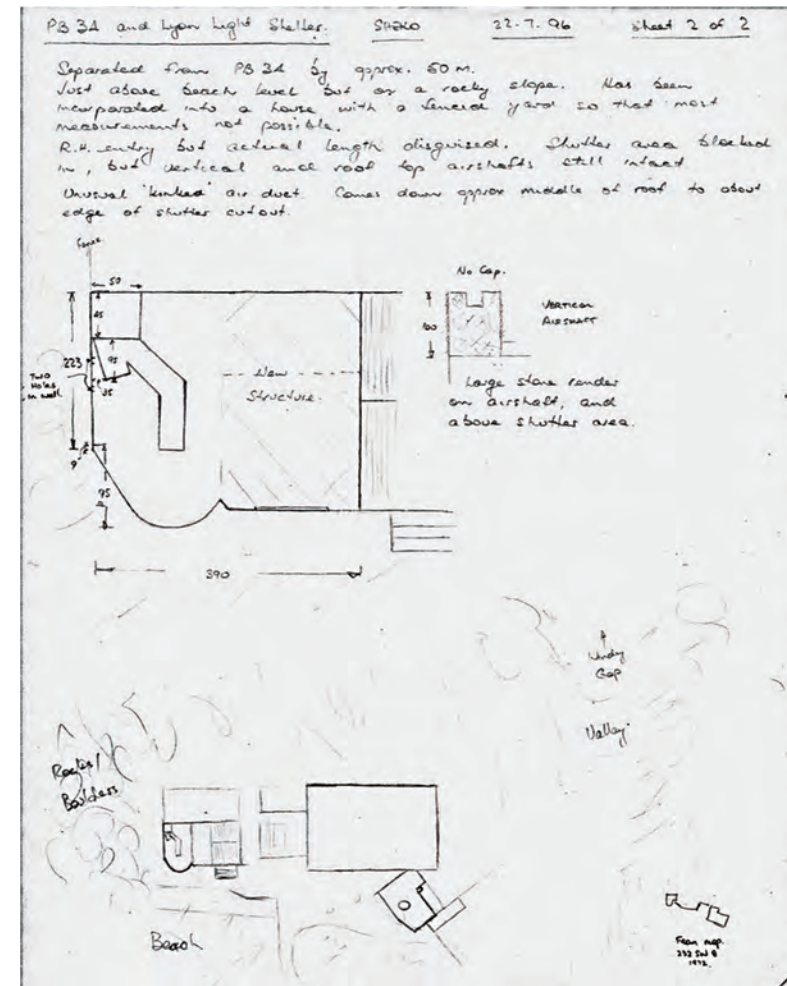 PB 3A and Lyon Light Shelter. SHEKO 22.7.96 Sheet 2 of 2
Separated from PB 3A by approx. 50 M.
Just above beach level but on a rocky slope. Has been
incorporated into a house with a fenced yard so that most
measurements not possible.
R.H. entry but actual length disguised. Shutter area blocked
in, but vertical and roof top airshafts still intact
Unusual 'kinked' air duct. Comes down approx middle of roof to about
edge of shutter cutout.
50
No Cap.
VERTICAL
AIRSHAFT
100
Large stone render
on airshaft, and
above shutter area.
223
95
TWO
HOLES
IN WALL
New
Structure.
9
95
390
Windy
Gap
Valley.
Rocks/
Boulders
Beach
From map.
1972.